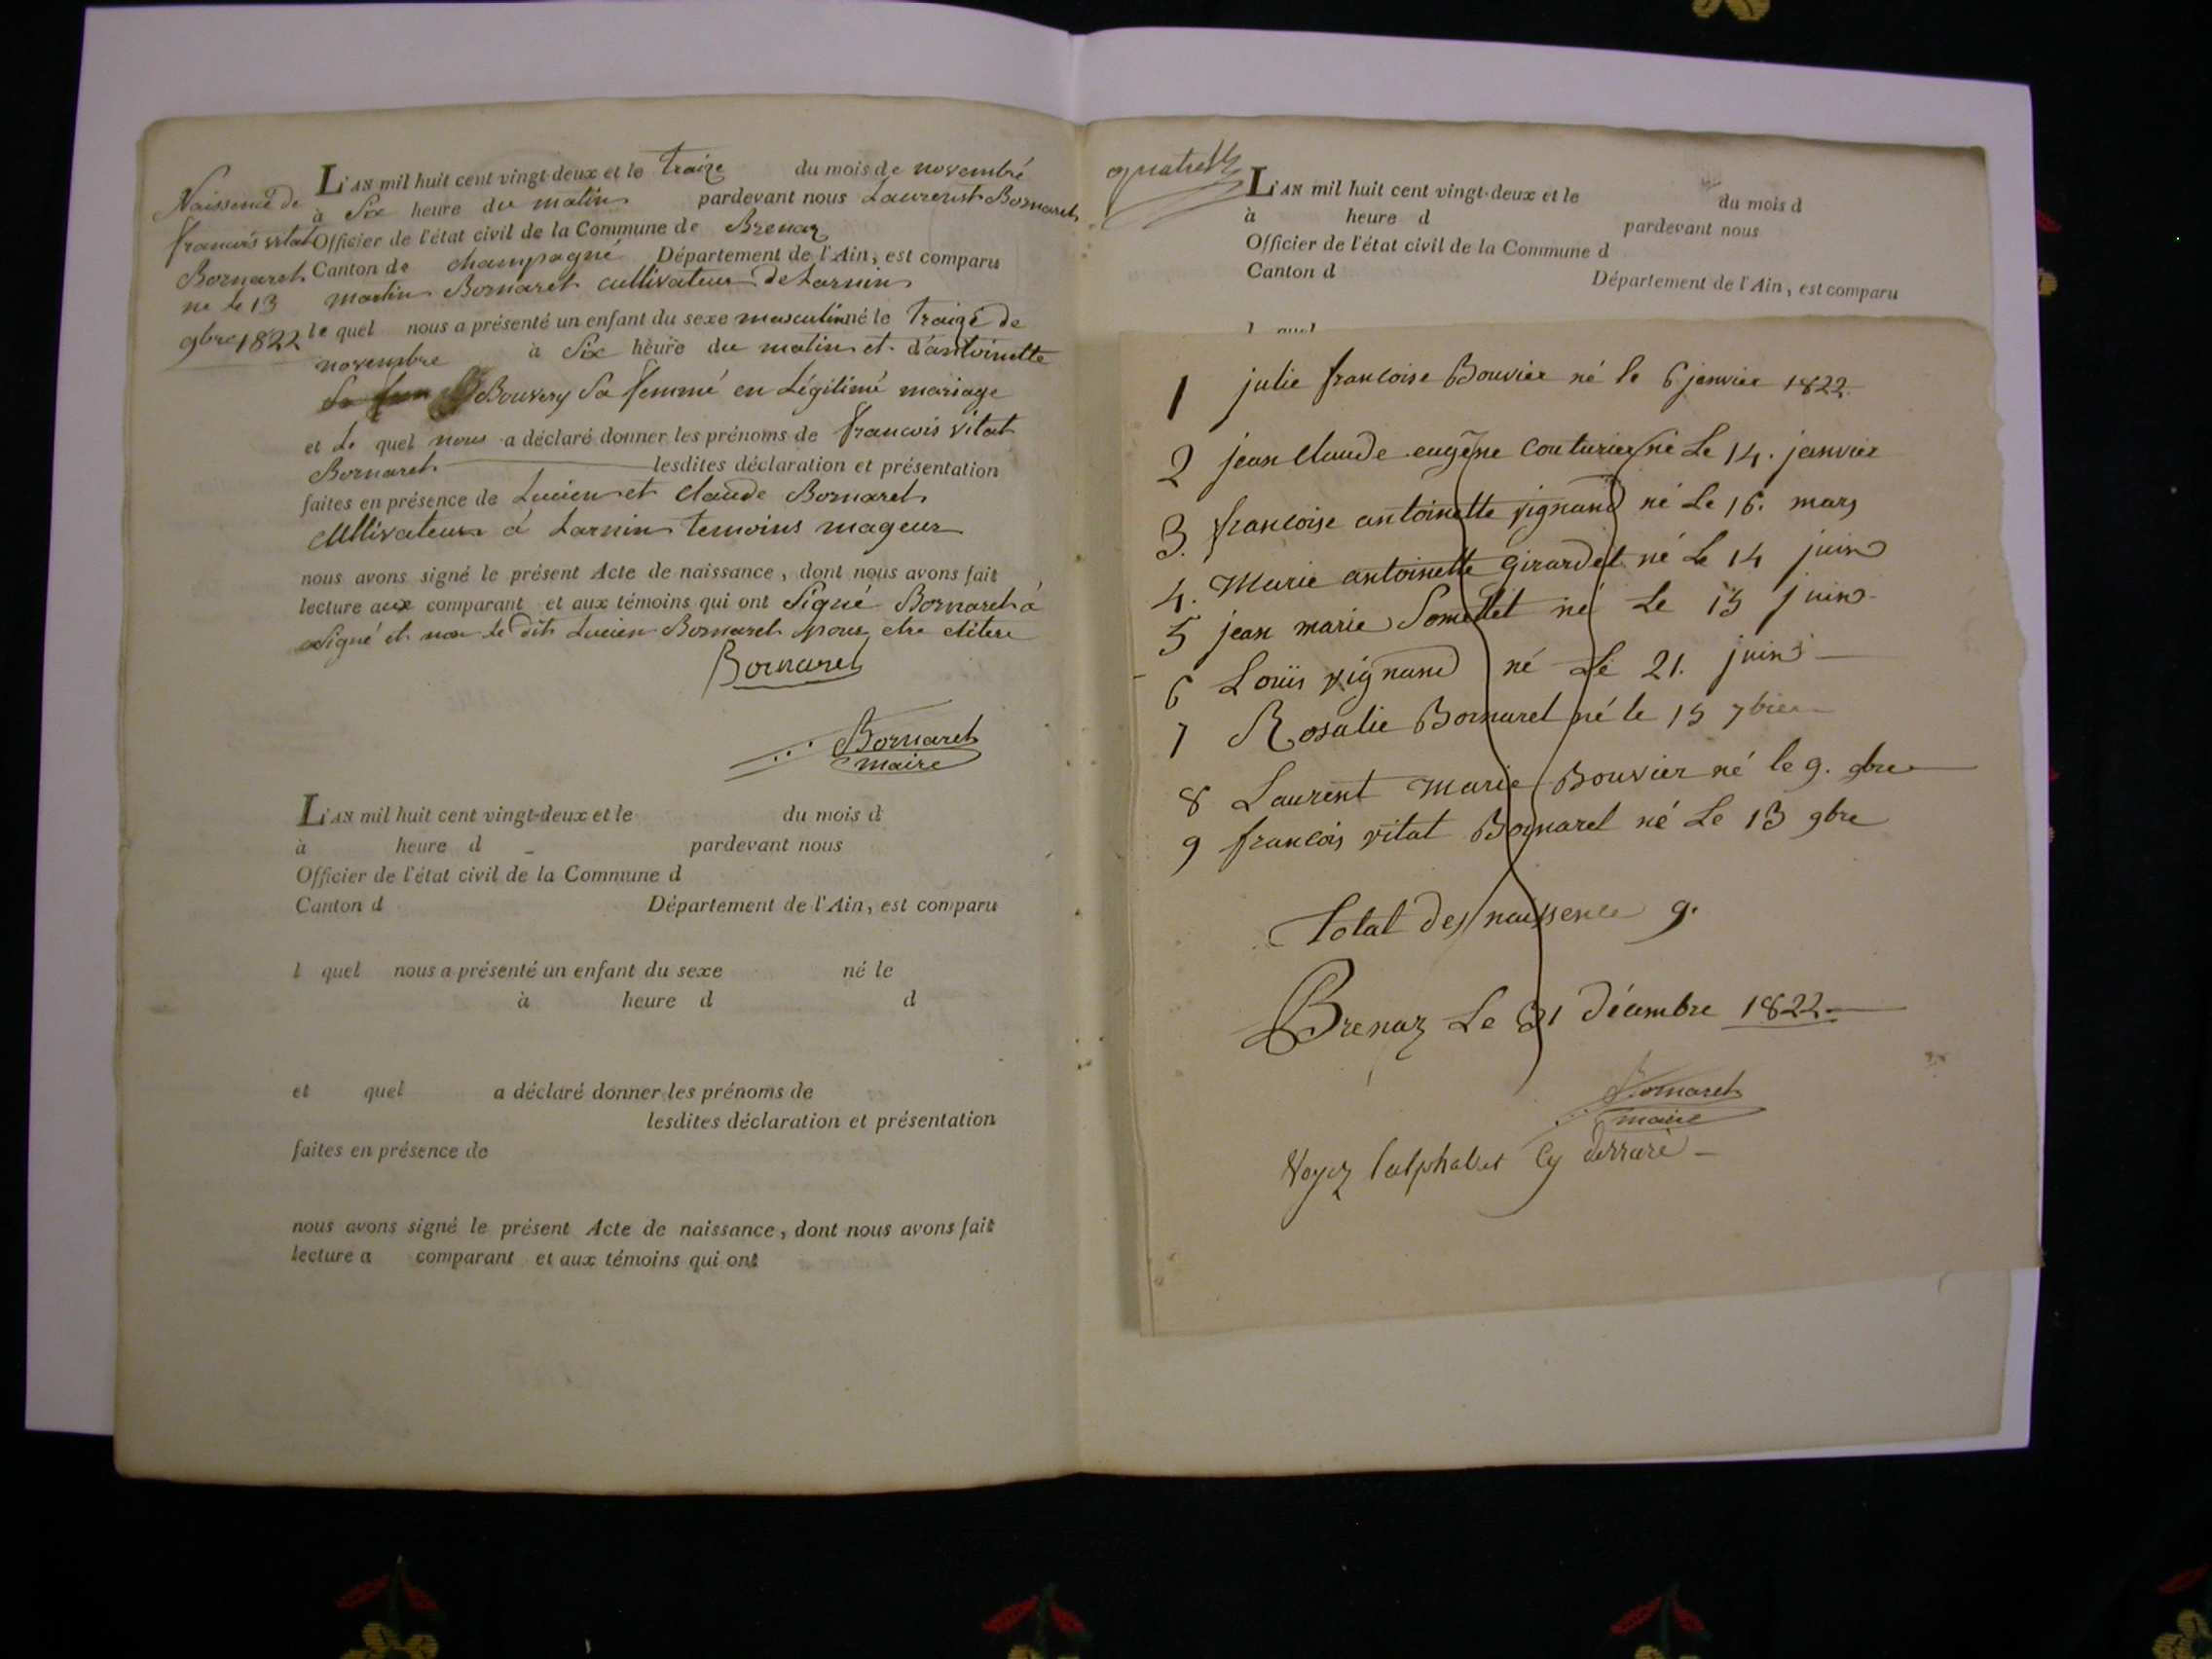 Naissence de
francois vitat
Bornaret
né le 13
9bre 1822
L'AN mil huit cent vingt-deux et le traize du mois de novembre
à Six heure du matin pardevant nous Laurent Bornaret
Officier de l'état civil de la Commune de Brenaz
Canton de champagne Département de l'Ain, est comparu
martin Bornaret cultivateur de Larnin
le quel nous a présenté un enfant du sexe masculin né le traize de
novembre à Six heure du matin et d'antoinette
Bouvery Sa femme en Légitime mariage
et Le quel nous a déclaré donner les prénoms de francois vitat
Bornaret lesdites déclaration et présentation
faites en présence de Lucien et claude Bornaret
cultivateurs à Larnin temoins mageur
nous avons signé le présent Acte de naissance, dont nous avons fait
lecture aux comparant et aux témoins qui ont Signé Bornaret a
Signé et non le dit Lucien Bornaret pour etre
Bornaret
Bornaret
maire
L'AN mil huit cent vingt-deux et le du mois d
à heure d pardevant nous
Officier de l'état civil de la Commune d
Canton d Département de l'Ain, est comparu
l quel nous a présenté un enfant du sexe né le
à heure d d
et quel a déclaré donner les prénoms de
lesdites déclaration et présentation
faites en présence de
nous avons signé le présent Acte de naissance, dont nous avons fait
lecture a comparant et aux témoins qui ont
L'AN mil huit cent vingt-deux et le du mois d
à heure d pardevant nous
Officier de l'état civil de la Commune d
Canton d Département de l'Ain, est comparu
l quel
1 julie francoise Bouvier né le 6 janvier 1822
2 jean claude eugène couturier né Le 14. janvier
3. francoise antoinette vignand né Le 16. mars
4. Marie antoinette girardet né Le 14 juin
5 jean marie Somettet né Le 15 juin
6 Louis vignand né Le 21. juin
7 Rosalie Bornaret né le 15 7bre
8 Laurent Marie Bouvier né le 9. 9bre
9 francois vitat Bornaret né Le 13 9bre
Total des naissence 9.
Brenaz Le 31 Décembre 1822
Bornaret
maire
Voyez l'alphabet Cy derrare